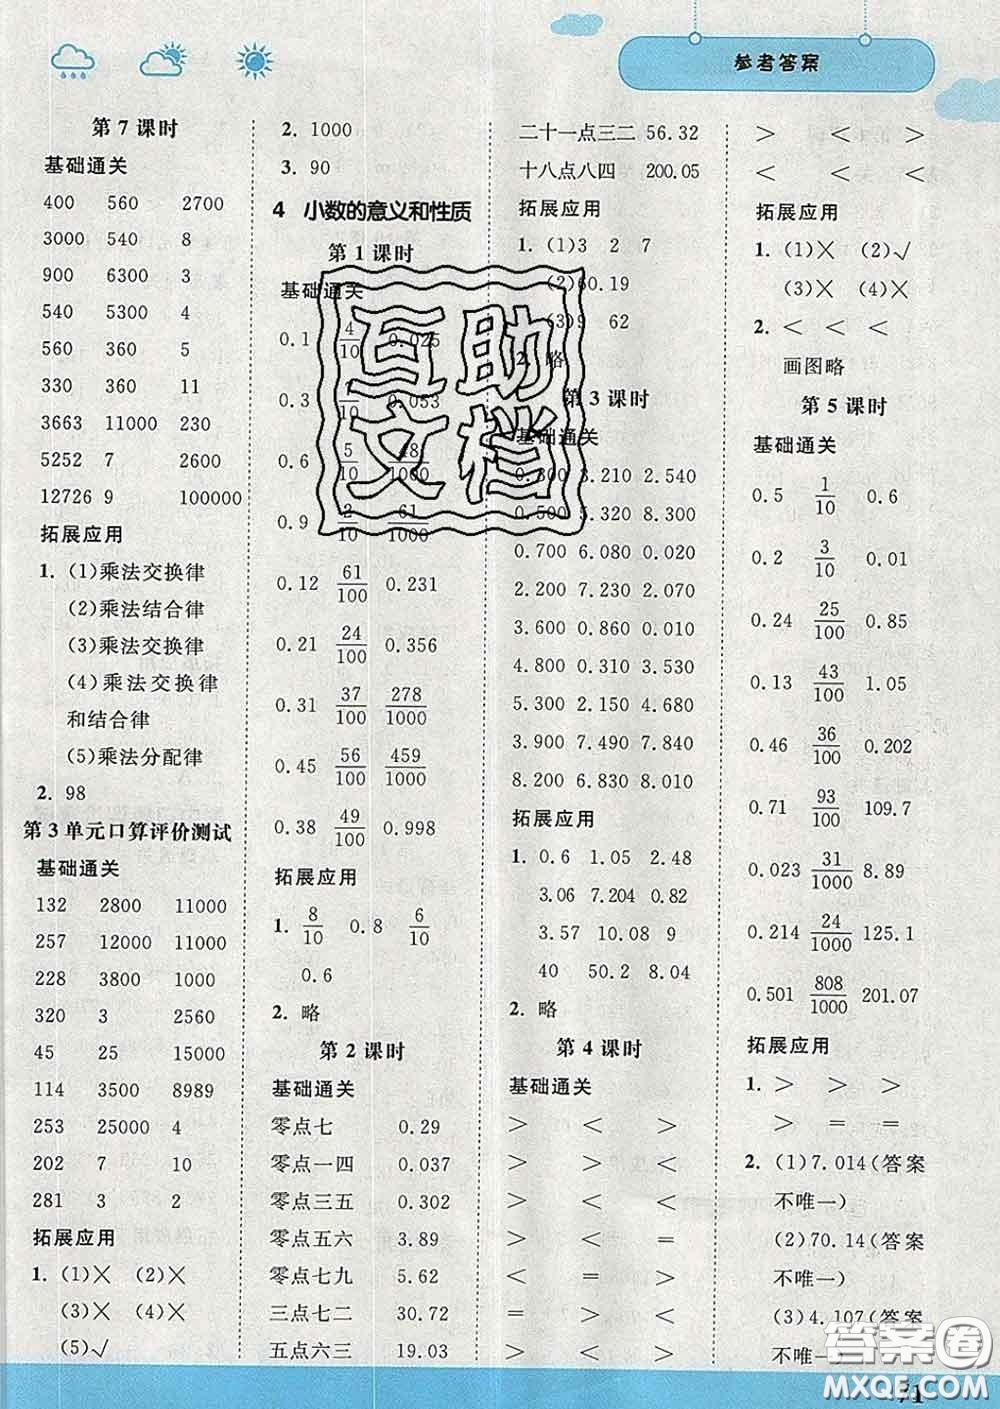 参考答案
第7课时
基础通关
400 560 2700
3000 540 8
900 6300 3
540 5300 4
560 360 5
330 360 11
3663 11000 230
5252 7 2600
12726 9 100000
拓展应用
1. (1)乘法交换律
(2)乘法结合律
(3)乘法交换律
(4)乘法交换律
和结合律
(5)乘法分配律
2. 98
第3单元口算评价测试
基础通关
132 2800 11000
257 12000 11000
228 3800 1000
320 3 2560
45 25 15000
114 3500 8989
253 25000 4
202 7 10
281 3 2
拓展应用
1. (1)× (2)×
(3)× (4)×
(5)√
2. 1000
3. 90
4 小数的意义和性质
第1课时
基础通关
0.1 4/10 0.025
0.3 /10 0.053
0.6 5/10 48/1000
0.9 2/10 61/1000
0.12 61/100 0.231
0.21 24/100 0.356
0.31 37/100 278/1000
0.45 56/100 459/1000
0.38 49/100 0.998
拓展应用
1. 8/10 0.8 6/10
0.6
2. 略
第2课时
基础通关
零点七 0.29
零点一四 0.037
零点三五 0.302
零点五六 3.89
零点七九 5.62
三点七二 30.72
五点六三 19.03
二十一点三二 56.32
十八点八四 200.05
拓展应用
1. (1)3 2 7
(2)60.19
(3)9 62
2. 略
第3课时
基础通关
0.300 3.210 2.540
0.500 5.320 8.300
0.700 6.080 0.020
2.200 7.230 2.070
3.600 0.860 0.010
4.800 0.310 3.530
5.300 2.150 4.680
3.900 7.490 7.840
8.200 6.830 8.010
拓展应用
1. 0.6 1.05 2.48
3.06 7.204 0.82
3.57 10.08 9
40 50.2 8.04
2. 略
第4课时
基础通关
> < >
> > <
> < <
> < =
< = >
= > <
> < <
> < >
< < <
拓展应用
1. (1)× (2)√
(3)× (4)×
2. < < <
画图略
第5课时
基础通关
0.5 1/10 0.6
0.2 3/10 0.01
0.24 25/100 0.85
0.13 43/100 1.05
0.46 36/100 0.202
0.71 93/100 109.7
0.023 31/1000 8.89
0.214 24/1000 125.1
0.501 808/1000 201.07
拓展应用
1. > > >
> = =
2. (1)7.014(答案
不唯一)
(2)70.14(答案
不唯一)
(3)4.107(答案
不唯一)
71
互助
文档
答案圈
MXQE.COM